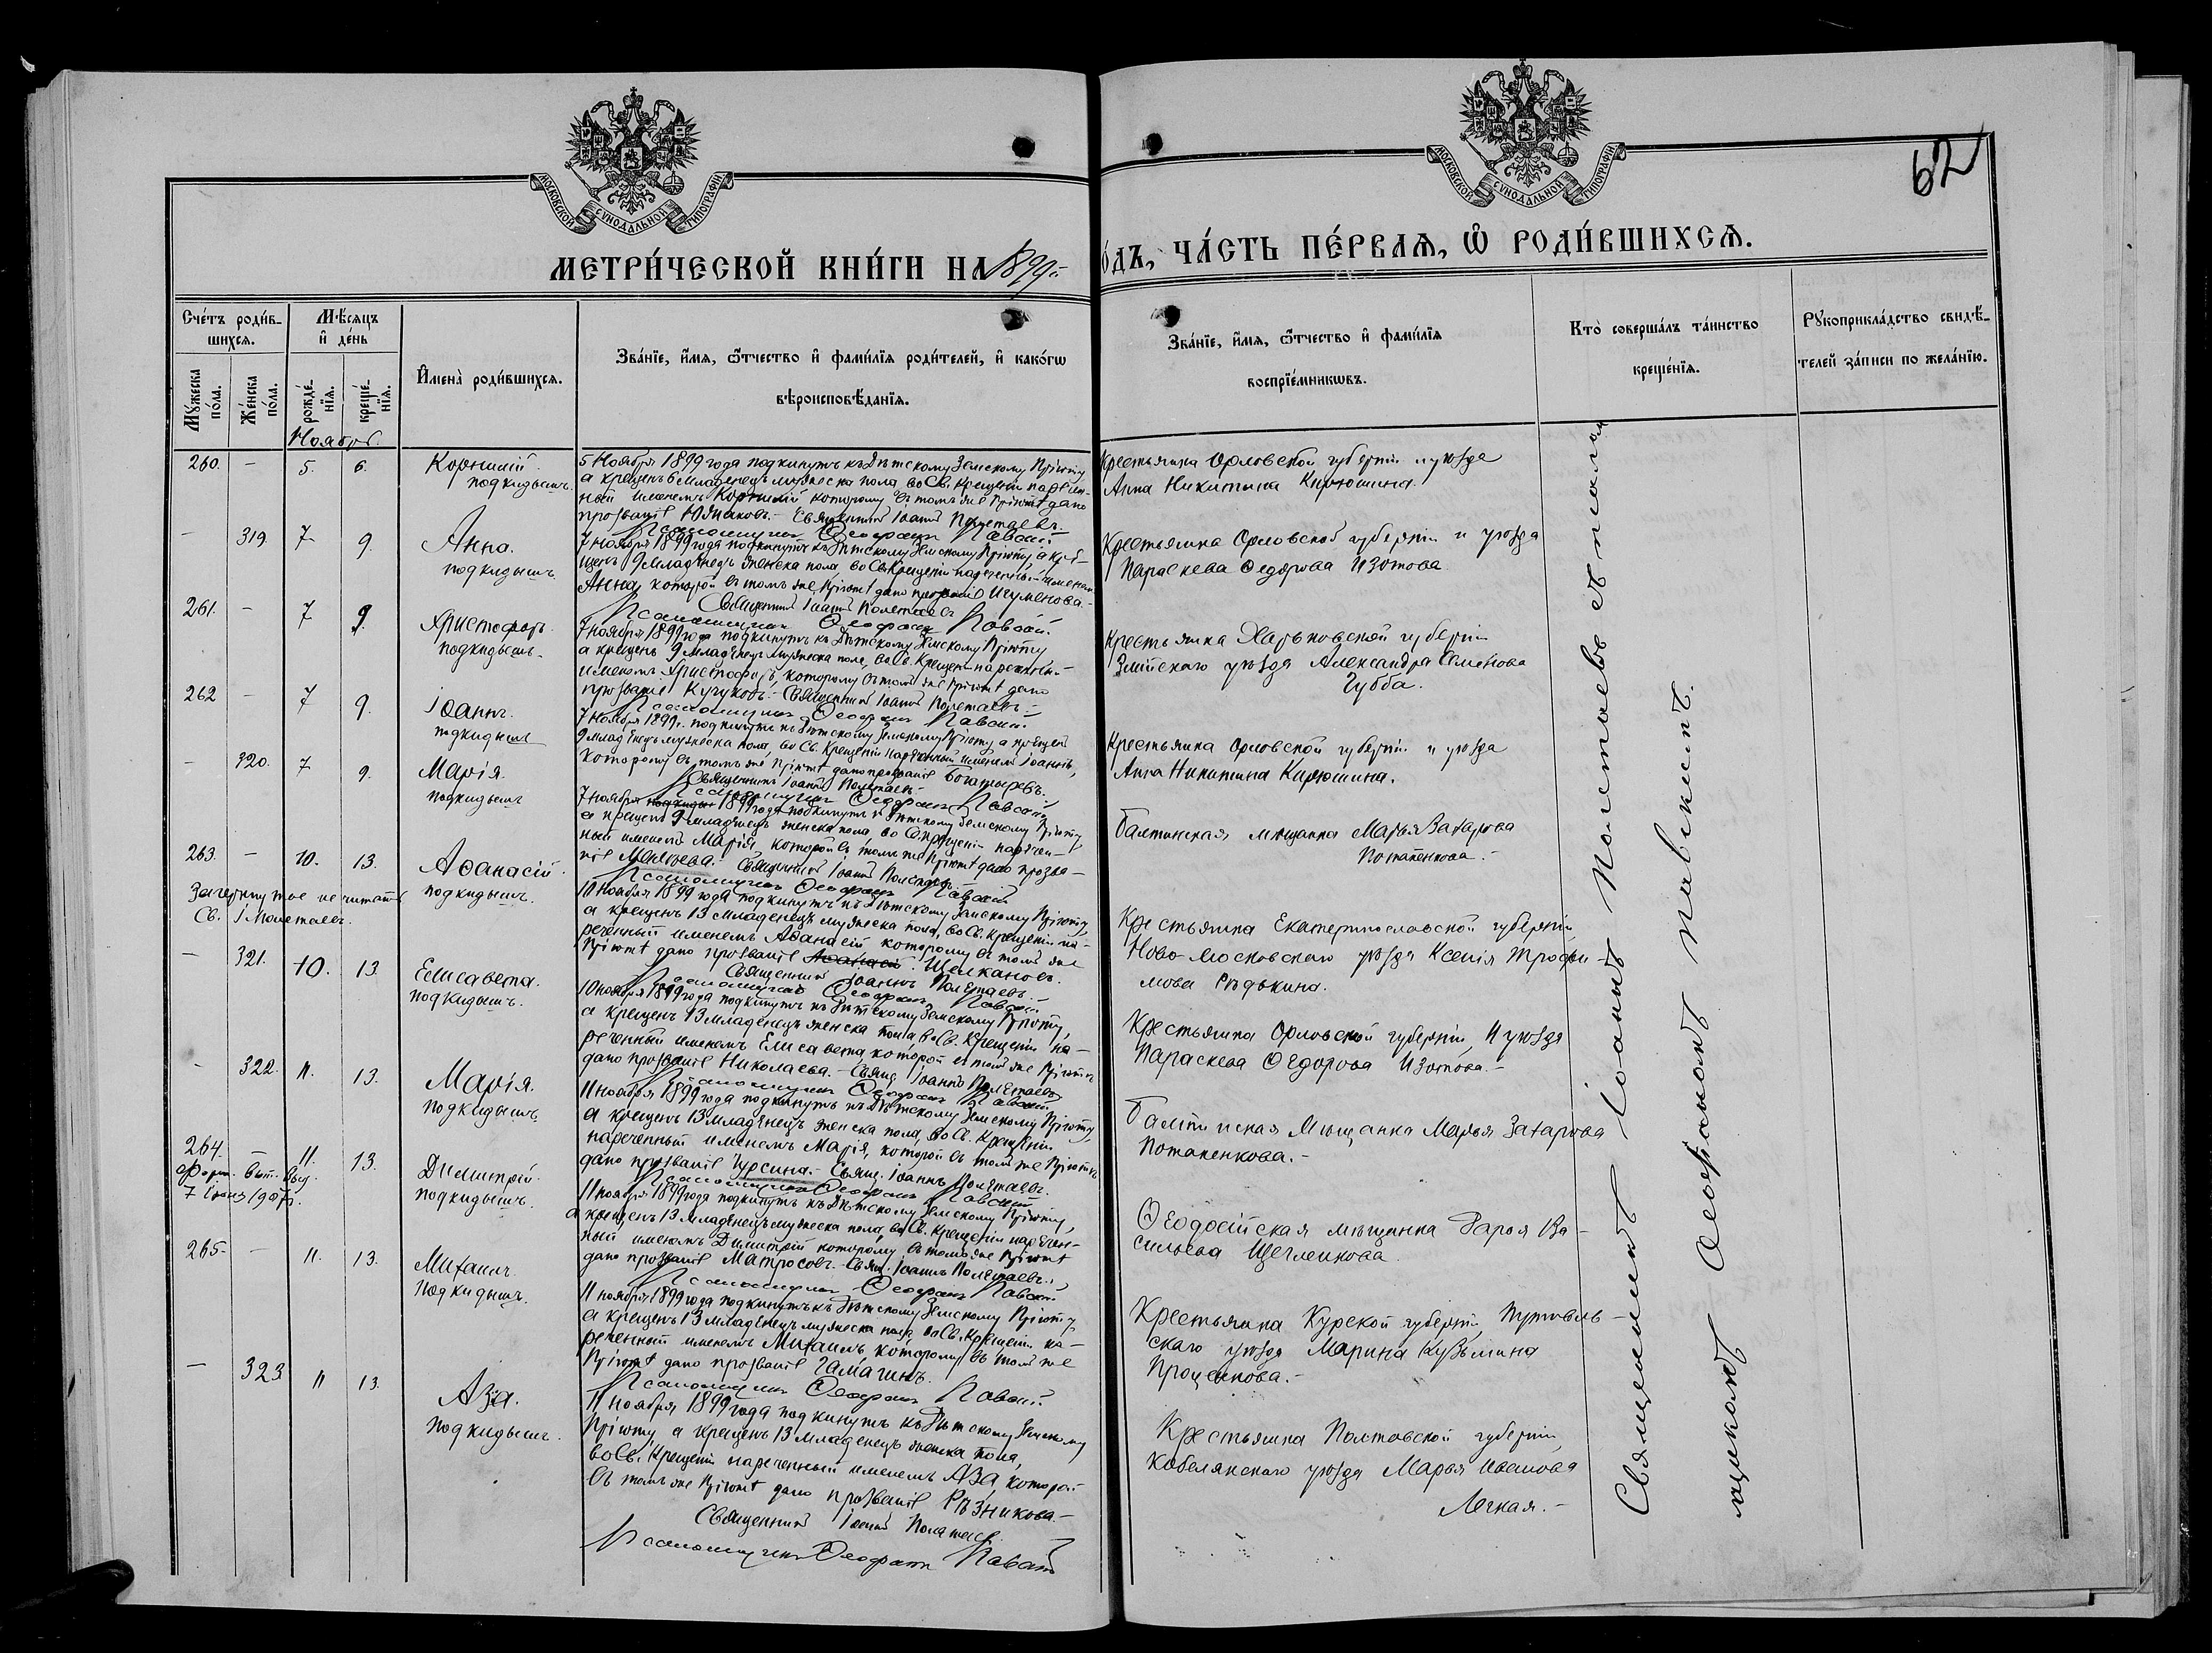 МОСКОВСКОЙ СУНОДАЛЬНОЙ ТИПОГРАФИИ
МОСКОВСКОЙ СУНОДАЛЬНОЙ ТИПОГРАФИИ
62
МЕТРИ́ЧЕСКОЙ КНИ́ГИ НА 1899й
О́ДЪ, ЧА́СТЬ ПЕ́РВАѦ, Ѡ҆ РОДИ́ВШИХСѦ.
Сче́тъ роди́в-
шихсѧ.
Мѣ́сѧцъ
и҆ де́нь
Мꙋ́жеска
по́ла.
Же́нска
по́ла.
рожде́-
нїѧ.
креще́-
нїѧ.
И҆мена̀ роди́вшихсѧ.
Зва́нїе, и҆́мѧ, ѻ҆́тчество и҆ фами́лїѧ роди́телей, и҆ како́гѡ
вѣроисповѣ́данїѧ.
Зва́нїе, и҆́мѧ, ѻ҆́тчество и҆ фами́лїѧ
воспрїе́мникѡвъ.
Кто̀ соверша́лъ та́инство
креще́нїѧ.
Рꙋкоприкла́дство свидѣ́-
телей за́писи по жела́нїю.
Ноябрь.
260. - 5. 6. Корнилій
подкидышъ.
5 Ноября 1899 года подкинутъ къ Дѣтскому Земскому Пріюту
а крещенъ 6 младенецъ мужеска пола во Св. Крещеніи наречен-
ный именемъ Корнилій которому въ томъ же Пріютѣ дано
прозваніе Юшаковъ. - Священникъ Іоаннъ Полетаевъ.
Псаломщикъ Ѳеофанъ Павскій
Крестьянка Орловской губерніи и уѣзда
Анна Никитина Кирюшина.
- 319. 7 9. Анна.
подкидышъ.
7 ноября 1899 года подкинутъ къ Дѣтскому Земскому Пріюту, а кре-
щенъ 9 младенецъ женска пола во Св. Крещеніи нареченный именемъ
Анна, которой въ томъ же Пріютѣ дано прозваніе Игуменова.-
Священникъ Іоаннъ Полетаевъ
Псаломщикъ Ѳеофанъ Павскій.
Крестьянка Орловской губерніи и уѣзда
Параскева Ѳедорова Изотова.
261. - 7 9. Христофоръ
подкидышъ.
7 ноября 1899 года подкинутъ къ Дѣтскому Земскому Пріюту
а крещенъ 9 младенецъ мужеска пола, во Св. Крещеніи нареченный
именемъ Христофоръ, которому въ томъ же Пріютѣ дано
прозваніе Кучуковъ. - Священникъ Іоаннъ Полетаевъ.-
Псаломщикъ Ѳеофанъ Павскій
Крестьянка Харьковской губерніи
Зміевскаго уѣзда Александра Семенова
Губба.
262 - 7 9. Іоаннъ.
подкидышъ
7 ноября 1899 г. подкинутъ къ Дѣтскому Земскому Пріюту а крещенъ
9 младенецъ мужеска пола, во Св. Крещеніи нареченный именемъ Іоаннъ,
которому въ томъ же Пріютѣ дано прозваніе Богатыревъ.
Священникъ Іоаннъ Полетаевъ
Псаломщикъ Ѳеофанъ Павскій
Крестьянка Орловской губерніи и уѣзда
Анна Никитина Кирюшина.
- 320. 7 9. Марія.
подкидышъ
7 ноября подкидыш 1899 года подкинутъ къ Дѣтскому Земскому Пріюту
а крещенъ 9 младенецъ женска пола, во Св. Крещеніи наречен-
ный именемъ Марія, которой въ томъ же Пріютѣ дано прозва-
ніе Священникъ Іоаннъ Полетаевъ
Псаломщикъ Ѳеофанъ Павскій
Балтинская мѣщанка Марья Захарова
Потапенкова.-
263. - 10. 13. Аѳанасій.
подкидышъ.
Зачеркнутое не читать
Св. І Полетаевъ.
10 Ноября 1899 года подкинутъ къ Дѣтскому Земскому Пріюту,
а крещенъ 13 младенецъ мужеска пола, во Св. Крещеніи на-
реченный именемъ Аѳанасій которому въ томъ же
Пріютѣ дано прозваніе Аѳанасій Щелкановъ.
Священникъ Іоаннъ Полетаевъ.-
Псаломщикъ Ѳеофанъ Павскій
Крестьянка Екатеринославской губерніи,
Ново-Московскаго уѣзда Ксенія Трофи-
мова Рѣдькина.
- 321. 10. 13. Елисавета.
подкидышъ.
10 ноября 1899 года подкинутъ къ Дѣтскому Земскому Пріюту,
а крещенъ 13 младенецъ женска пола, во Св. Крещеніи на-
реченный именемъ Елисавета которой въ томъ же Пріютѣ
дано прозваніе Николаева. - Свящ. Іоаннъ Полетаевъ
Псаломщикъ Ѳеофанъ Павскій
Крестьянка Орловской губерніи, и уѣзда
Параскева Ѳедорова Изотова.-
- 322. 11. 13. Марія.
подкидышъ.
11 ноября 1899 года подкинутъ къ Дѣтскому Земскому Пріюту,
а крещенъ 13 младенецъ женска пола, во Св. Крещеніи
нареченный именемъ Марія, которой въ томъ же Пріютѣ
дано прозваніе Турсина. - Свящ. Іоаннъ Полетаевъ.
Псаломщикъ Ѳеофанъ Павскій
Балтинская Мѣщанка Марья Захарова
Потапенкова.-
264. - 11. 13. Димитрій.
подкидышъ.
7 1907 г.
11 ноября 1899 года подкинутъ къ Дѣтскому Земскому Пріюту,
а крещенъ 13 младенецъ мужеска пола, во Св. Крещеніи наречен-
ный именемъ Димитрій которому въ томъ же Пріютѣ
дано прозваніе Матросовъ. - Свящ. Іоаннъ Полетаевъ.
Псаломщикъ Ѳеофанъ Павскій
Ѳеодосійская мѣщанка Дарья Ва-
сильева Щегленкова.
265. - 11. 13. Михаилъ.
подкидышъ.
11 ноября 1899 года подкинутъ къ Дѣтскому Земскому Пріюту
а крещенъ 13 младенецъ мужеска пола во Св. Крещеніи на-
реченный именемъ Михаилъ которому въ томъ же
Пріютѣ дано прозваніе Гамагинъ.
Псаломщикъ Ѳеофанъ Павскій
Крестьянка Курской губерніи, Путивль-
скаго уѣзда Марина Кузьмина
Проценкова.-
- 323 11 13. Аза.
подкидышъ.
11 ноября 1899 года подкинутъ къ Дѣтскому Земскому
Пріюту, а крещенъ 13 младенецъ женска пола,
во Св. Крещеніи нареченный именемъ Аза, которой
въ томъ же Пріютѣ дано прозваніе Рѣзникова.-
Священникъ Іоаннъ Полетаевъ
Псаломщикъ Ѳеофанъ Павскій
Крестьянка Полтавской губерніи,
Кобелякскаго уѣзда Марья Иванова
Легкая.-
Священникъ Іоаннъ Полетаевъ съ псало-
мщикомъ Ѳеофаномъ Павскимъ.